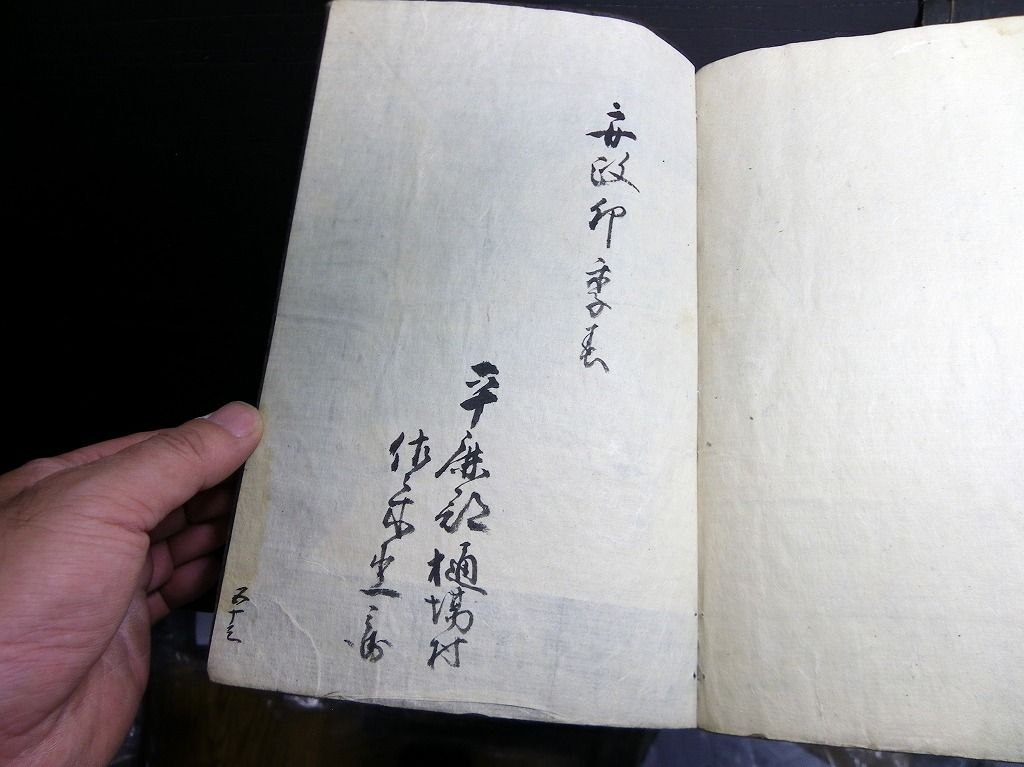 安政卯季春
平鹿郡樋場村
佐々木
五十三